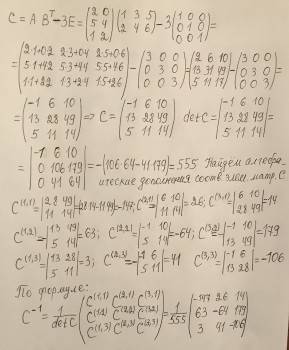 C = A B^T - 3E = (2 0; 5 4; 1 2) (1 3 5; 2 4 6) - 3 (1 0 0; 0 1 0; 0 0 1) =
= (2·1+0·2 2·3+0·4 2·5+0·6; 5·1+4·2 5·3+4·4 5·5+4·6; 1·1+2·2 1·3+2·4 1·5+2·6) - (3 0 0; 0 3 0; 0 0 3) = (2 6 10; 13 31 49; 5 11 17) - (3 0 0; 0 3 0; 0 0 3) =
= (-1 6 10; 13 28 49; 5 11 14) => C = (-1 6 10; 13 28 49; 5 11 14) det C = |-1 6 10; 13 28 49; 5 11 14| =
= |-1 6 10; 0 106 179; 0 41 64| = -(106·64-41·179) = 555 Найдем алгебра-
ические дополнения соотв. элем. матр. C
C^(1,1) = |28 49; 11 14| = (28·14-11·49) = -147; C^(2,1) = -|6 10; 11 14| = 26; C^(3,1) = |6 10; 28 49| = 14
C^(1,2) = -|13 49; 5 14| = 63; C^(2,2) = |-1 10; 5 14| = -64; C^(3,2) = -|-1 10; 13 49| = 179
C^(1,3) = |13 28; 5 11| = 3; C^(2,3) = -|-1 6; 5 11| = 41 C^(3,3) = |-1 6; 13 28| = -106
По формуле:
C^-1 = 1/det C (C^(1,1) C^(2,1) C^(3,1); C^(1,2) C^(2,2) C^(3,2); C^(1,3) C^(2,3) C^(3,3)) = 1/555 (-147 26 14; 63 -64 179; 3 41 -106)